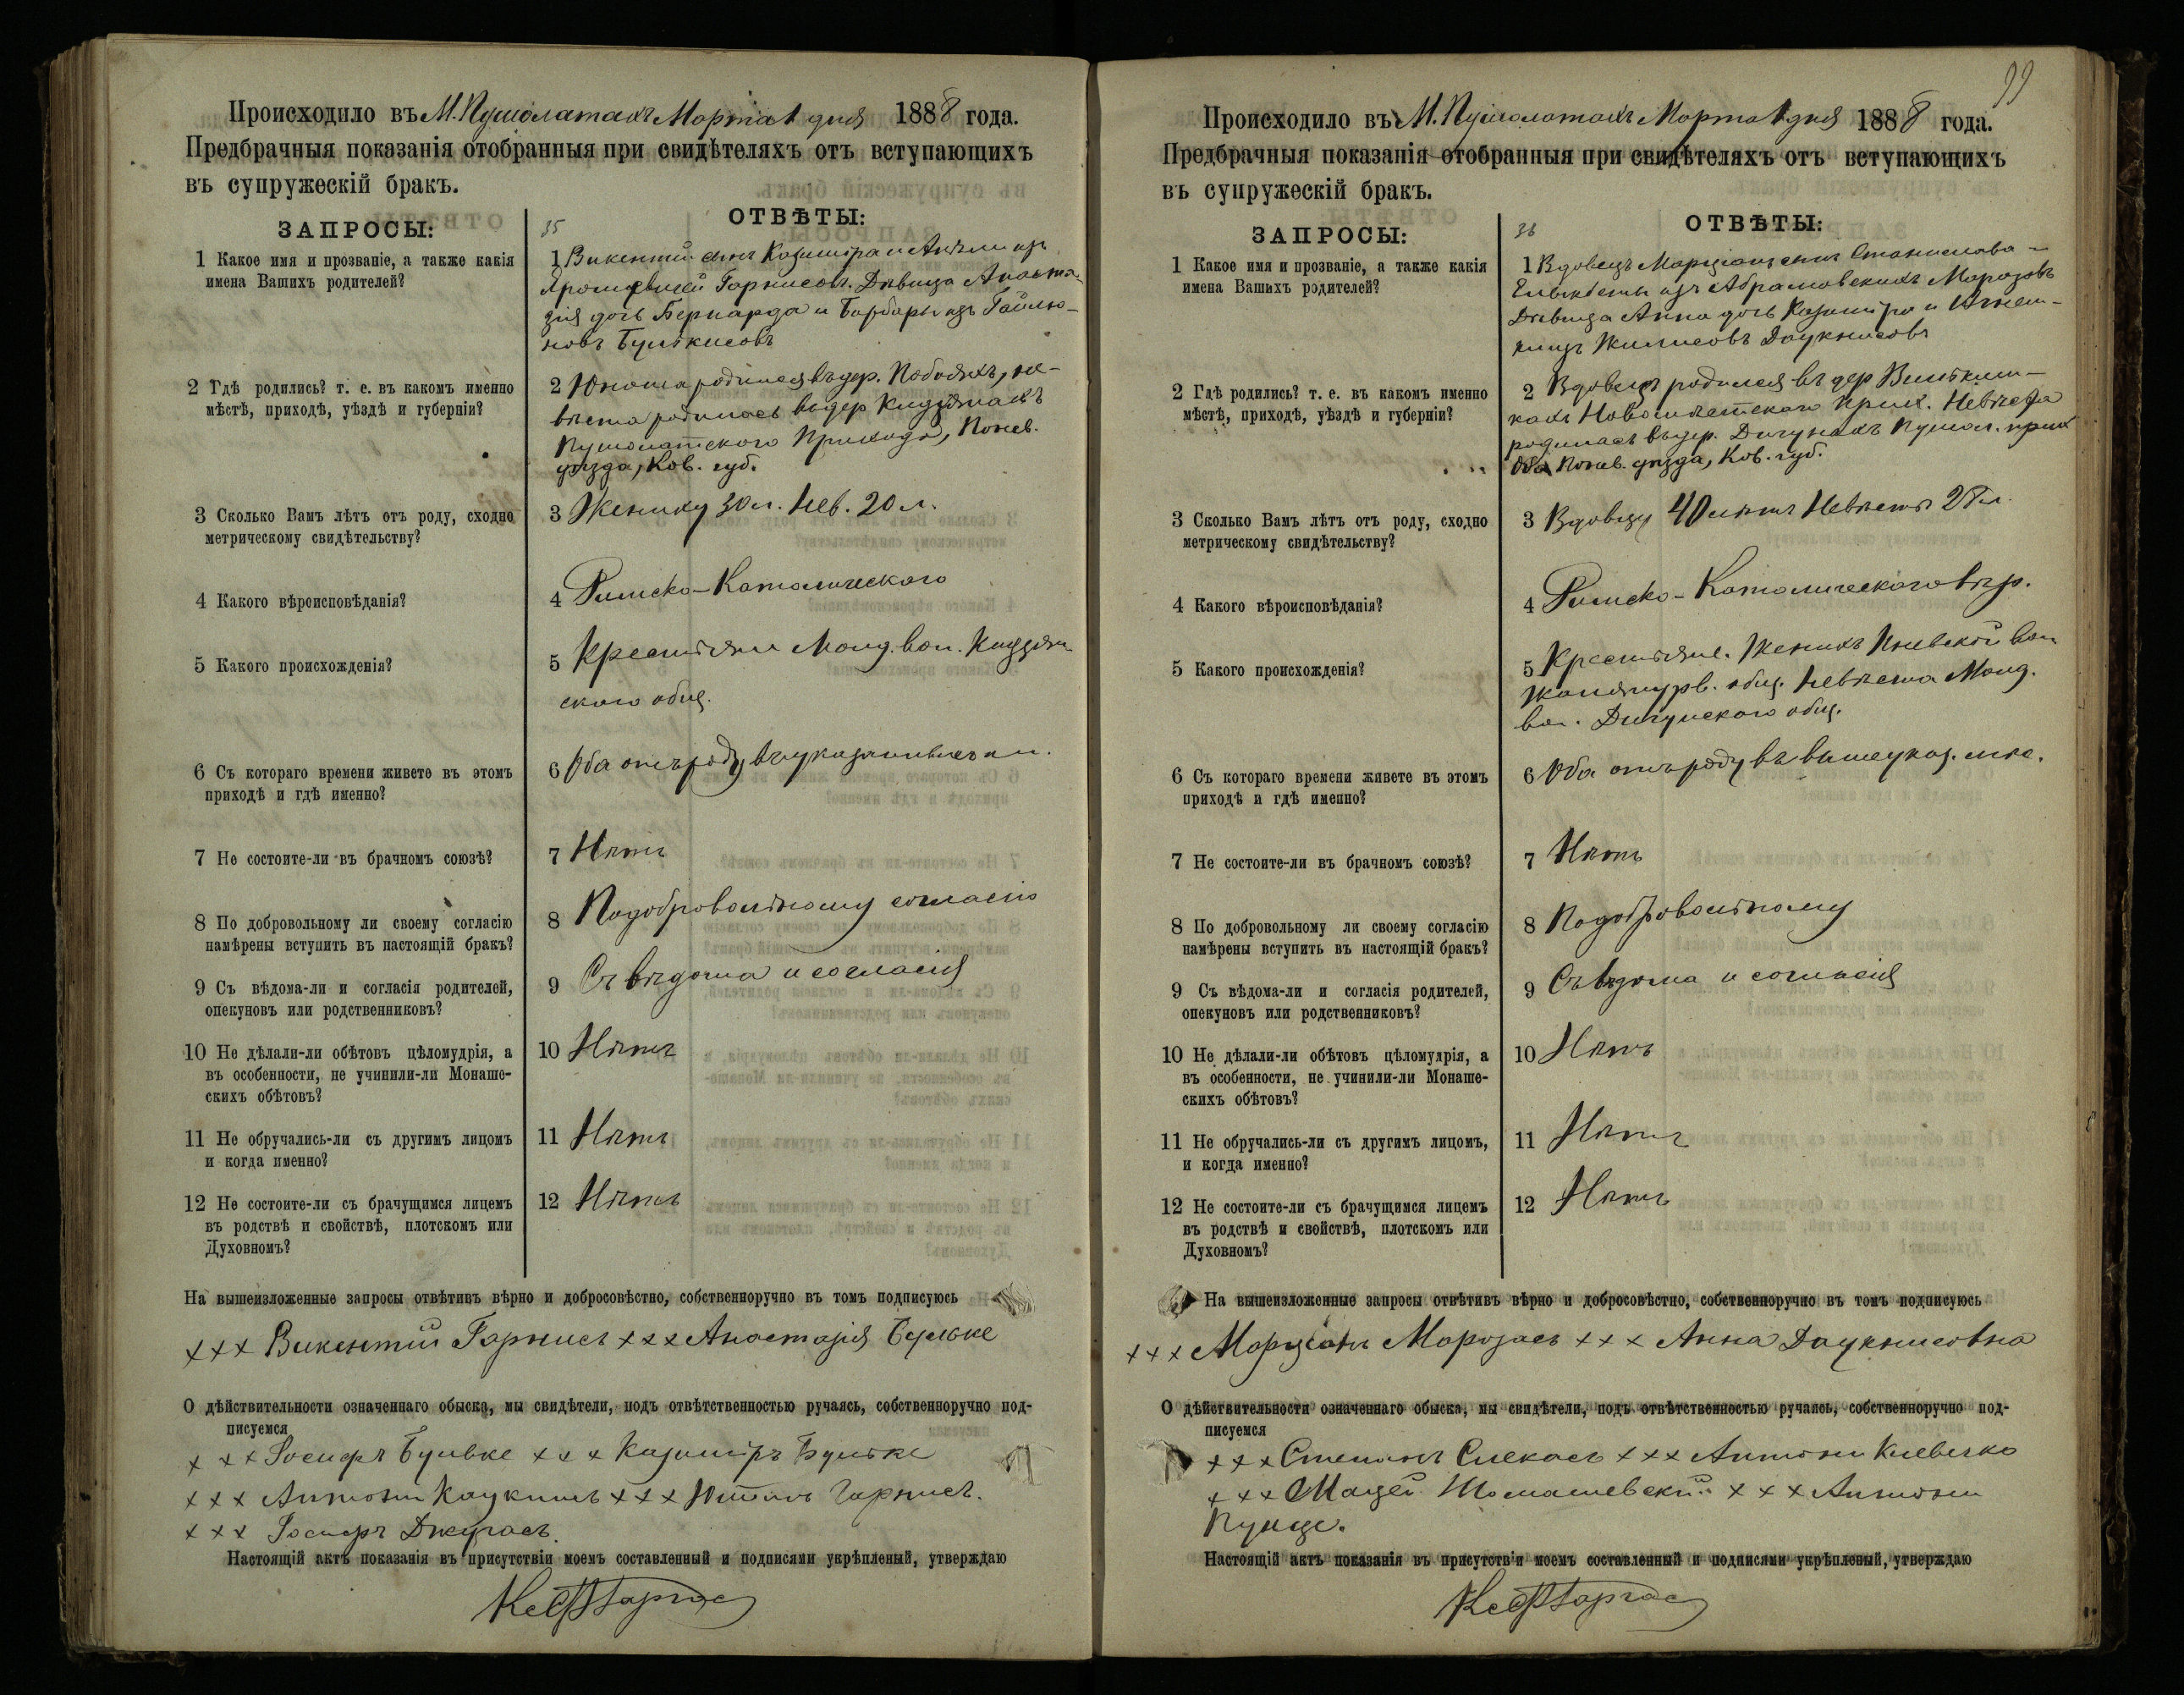 Происходило въ М. Пушолатахъ Марта 1 дня 1888 года.
Предбрачныя показанія отобранныя при свидѣтеляхъ отъ вступающихъ
въ супружескій бракъ.
ЗАПРОСЫ:
35
ОТВѢТЫ:
1 Какое имя и прозваніе, а также какія
имена Вашихъ родителей?
1 Викентій сынъ Казиміра и Анѣли изъ
Гарнисовъ. Дѣвица Анаста-
зія дочь Бернарда и Барбары изъ Гайлю-
новъ Булькисовъ
2 Гдѣ родились? т. е. въ какомъ именно
мѣстѣ, приходѣ, уѣздѣ и губерніи?
2 Юноша родился въ дер. не-
вѣста родилась въ дер.
Пушолатскаго Прихода, Понев.
уѣзда, Ков. губ.
3 Сколько Вамъ лѣтъ отъ роду, сходно
метрическому свидѣтельству?
3 Жениху 30 л. Нев. 20 л.
4 Какого вѣроисповѣданія?
4 Римско-Католическаго
5 Какого происхожденія?
5 Крестьяне вол.
скаго общ.
6 Съ котораго времени живете въ этомъ
приходѣ и гдѣ именно?
6 Оба отъ роду
7 Не состоите-ли въ брачномъ союзѣ?
7 Нѣтъ
8 По добровольному ли своему согласію
намѣрены вступить въ настоящій бракъ?
8 По добровольному согласію
9 Съ вѣдома-ли и согласія родителей,
опекуновъ или родственниковъ?
9 Съ вѣдома и согласія
10 Не дѣлали-ли обѣтовъ цѣломудрія, а
въ особенности, не учинили-ли Монаше-
скихъ обѣтовъ?
10 Нѣтъ
11 Не обручались-ли съ другимъ лицомъ
и когда именно?
11 Нѣтъ
12 Не состоите-ли съ брачущимся лицемъ
въ родствѣ и свойствѣ, плотскомъ или
Духовномъ?
12 Нѣтъ
На вышеизложенные запросы отвѣтивъ вѣрно и добросовѣстно, собственноручно въ томъ подписуюсь
××× Викентій Гарнисъ ××× Анастазія Бульке
О дѣйствительности означеннаго обыска, мы свидѣтели, подъ отвѣтственностью ручаясь, собственноручно под-
писуемся
××× Іосифъ Бульке ××× Казиміръ Бульке
××× Антони ××× Гарнисъ.
××× Іосифъ
Настоящій актъ показанія въ присутствіи моемъ составленный и подписями укрѣпленый, утверждаю
99
Происходило въ М. Пушолатахъ Марта 1 дня 1888 года.
Предбрачныя показанія отобранныя при свидѣтеляхъ отъ вступающихъ
въ супружескій бракъ.
ЗАПРОСЫ:
36
ОТВѢТЫ:
1 Какое имя и прозваніе, а также какія
имена Вашихъ родителей?
1 Вдовецъ Марціанъ сынъ Станислава
Ельжбеты изъ Абрамовскихъ Морозовъ
Дѣвица Анна дочь Казиміра и Агнеш-
ки изъ Даукнисовъ
2 Гдѣ родились? т. е. въ какомъ именно
мѣстѣ, приходѣ, уѣздѣ и губерніи?
2 Вдовецъ родился въ дер
кахъ прих. Невѣста
родилась въ дер. Дигунахъ Пушол. прих
оба Понев. уѣзда, Ков. губ.
3 Сколько Вамъ лѣтъ отъ роду, сходно
метрическому свидѣтельству?
3 Вдовцу 40 лѣтъ Невѣстѣ 28 л.
4 Какого вѣроисповѣданія?
4 Римско-Католическаго вѣр.
5 Какого происхожденія?
5 Крестьяне. Женихъ вол.
общ. Невѣста
вол. Дигунскаго общ.
6 Съ котораго времени живете въ этомъ
приходѣ и гдѣ именно?
6 Оба отъ роду въ вышеуказ. мѣс.
7 Не состоите-ли въ брачномъ союзѣ?
7 Нѣтъ
8 По добровольному ли своему согласію
намѣрены вступить въ настоящій бракъ?
8 По добровольному
9 Съ вѣдома-ли и согласія родителей,
опекуновъ или родственниковъ?
9 Съ вѣдома и согласія
10 Не дѣлали-ли обѣтовъ цѣломудрія, а
въ особенности, не учинили-ли Монаше-
скихъ обѣтовъ?
10 Нѣтъ
11 Не обручались-ли съ другимъ лицомъ,
и когда именно?
11 Нѣтъ
12 Не состоите-ли съ брачущимся лицемъ
въ родствѣ и свойствѣ, плотскомъ или
Духовномъ?
12 Нѣтъ
На вышеизложенные запросы отвѣтивъ вѣрно и добросовѣстно, собственноручно въ томъ подписуюсь
××× Марціанъ Морозасъ ××× Анна Даукнисовна
О дѣйствительности означеннаго обыска, мы свидѣтели, подъ отвѣтственностью ручаясь, собственноручно под-
писуемся
××× Степанъ Слекасъ ××× Антони Клевечко
××× Мацей Шомашевскій ××× Антони
Настоящій актъ показанія въ присутствіи моемъ составленный и подписями укрѣпленый, утверждаю